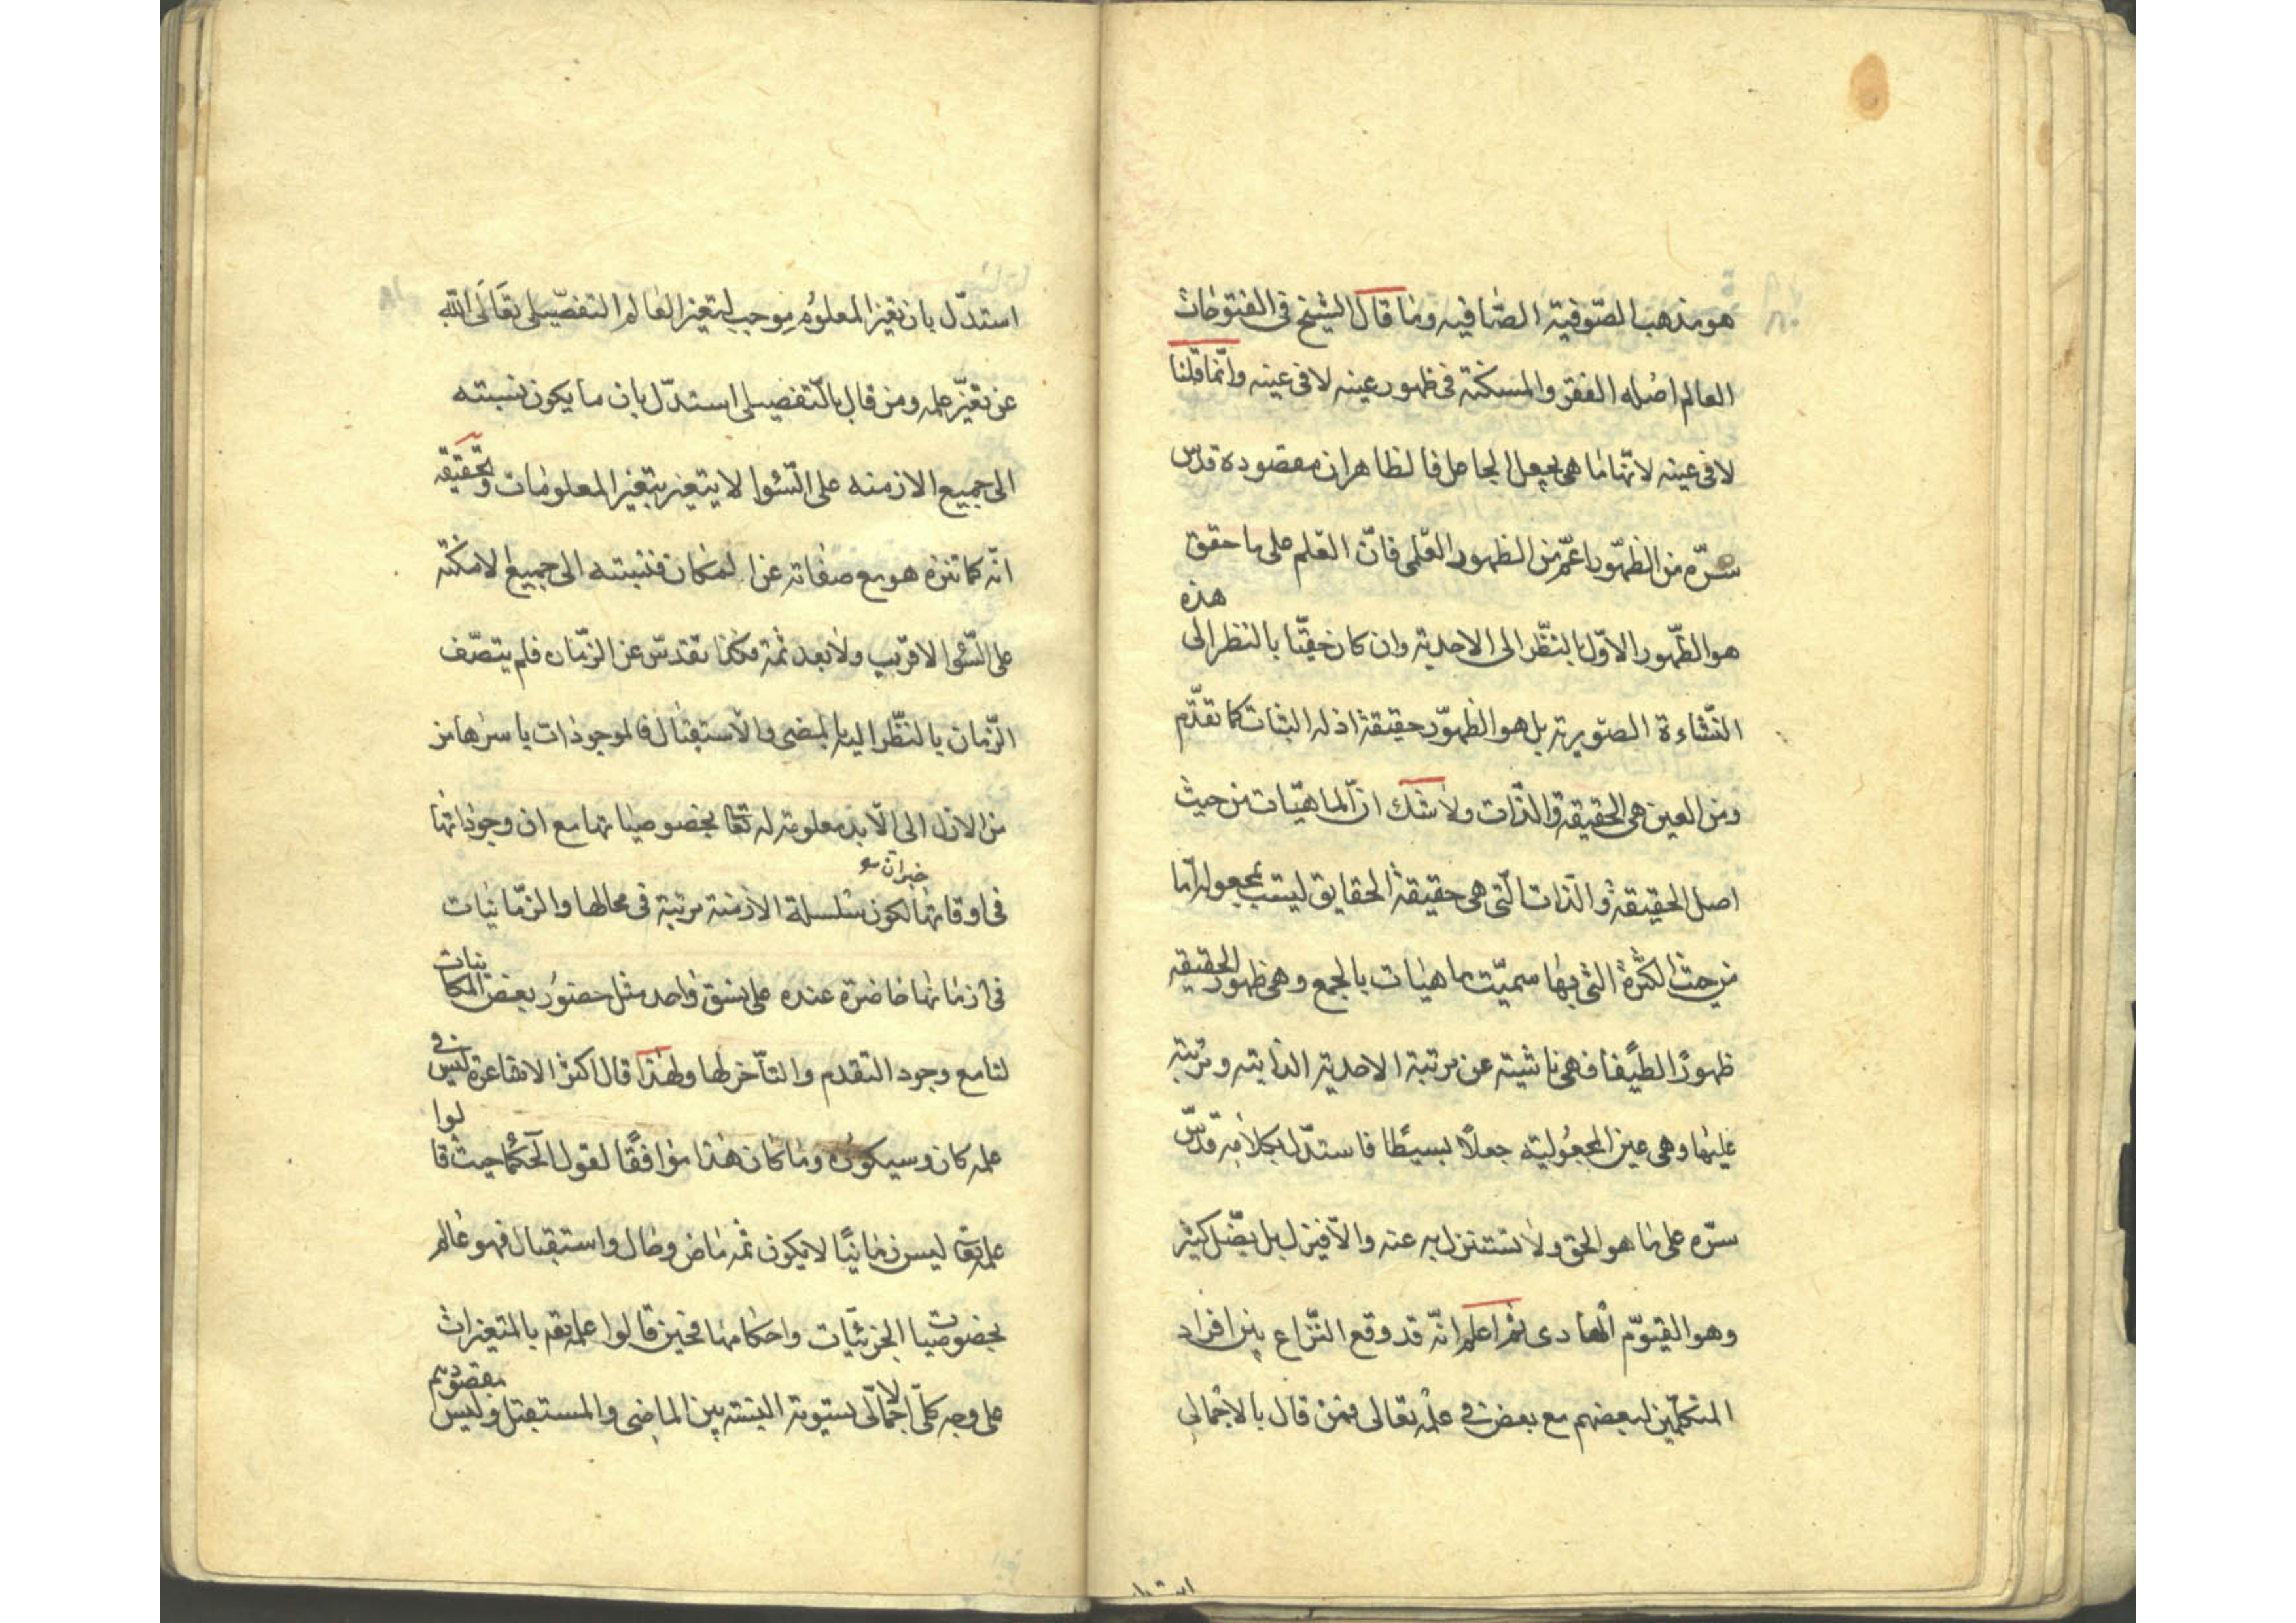 هو مذهب الصّوفية الصّافيه وما قال الشيخ فى الفتوحات
العالم اصله الفقر والمسكنة فى ظهور عينه لا فى عينه وانّما قلنا
لا فى عينه لانّها ما هى بجعل الجاعل فالظاهر ان مقصوده قدّس
سرّه من الظهور اعمّ من الظهور العلمى فانّ العلم على ما حقق
هو الظّهور الاوّل بالنّظر الى الاحدية وان كان خفيّا بالنظر الى هذه
النّشاءة الصّورية بل هو الظهور حقيقة اذ له الثبات كما تقدّم
ومن العين هى الحقيقة والذّات ولا شك انّ الماهيّات من حيث
اصل الحقيقة والذات الّتى هى حقيقة الحقايق ليست بمجعولة امّا
من حيث الكثرة التى بها سميّت ماهيات بالجمع وهى ظهور الحقيقه
ظهورًا لطيفا فهى ناشية عن مرتبة الاحدية الذاتية ومرتبة
عليها وهى عين المجعولية جعلًا بسيطًا فاستدل بكلامه قدّس
سرّه على ما هو الحق ولا تستنزل به عنه والّا فيزل بل يضّل كثير
وهو القيوّم الهادى ثم اعلم انّه قد وقع النّزاع بين افراد
المتكلّمين لبعضهم مع بعض فى علمه تعالى فمن قال بالاجمالى
استدّل بان تغيّر المعلوم موجب لتغير العالم التفصّيلى تعالى الله
عن تغيّر علمه ومن قال بالتّفصيلى استدّل بان ما يكون نسبته
الى جميع الازمنه على السّوا لا يتغير بتغير المعلومات وتحقيقه
انّه كما تنزه هو مع صفاته عن المكان فنسبته الى جميع الامكنة
على السّوا لا قريب ولا بعد ثمة فكذا تقدسّ عن الزّمان فلم يتصّف
الزّمان بالنّظر اليه بالمضى والاستقبال فالموجودات باسرها من
من الازل الى الّابد معلومة له تعا بخصوصياتها مع ان وجوداتها
فى اوقاتها لكون سلسلة الازمنة مرتبة فى محالها والزّمانيات
فى ازمانها حاضرة عنده على نسق واحد مثل حضور بعض المكانيات
لنا مع وجود التقدم والتأخر لها ولهذا قال اكثر الاشاعرة ليس فى
علمه كان وسيكون وما كان هذا موافقًا لقول الحكما حيث قالوا
علمه تعا ليس زمانيًا لا يكون ثمه ماض وحال واستقبال فهو عالم
بخصوصيات الجزئيّات واحكامها فحين قالوا علمه تعه بالمتغيرات
على وجه كلّى اجمالّى لا ستوية النسبة بين الماضى والمستقبل وليس مقصودهم